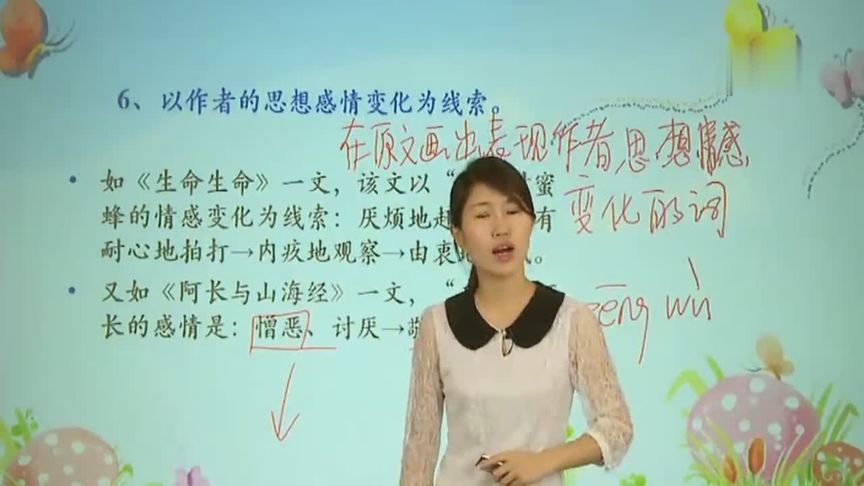 6、以作者的思想感情变化为线索。
在原文画出表现作者思想情感
变化的词
• 如《生命生命》一文，该文以“
蜜
蜂的情感变化为线索：厌烦地赶
有
耐心地拍打→内疚地观察→由衷
• 又如《阿长与山海经》一文，“
长的感情是：憎恶、讨厌→敬
zēng wù